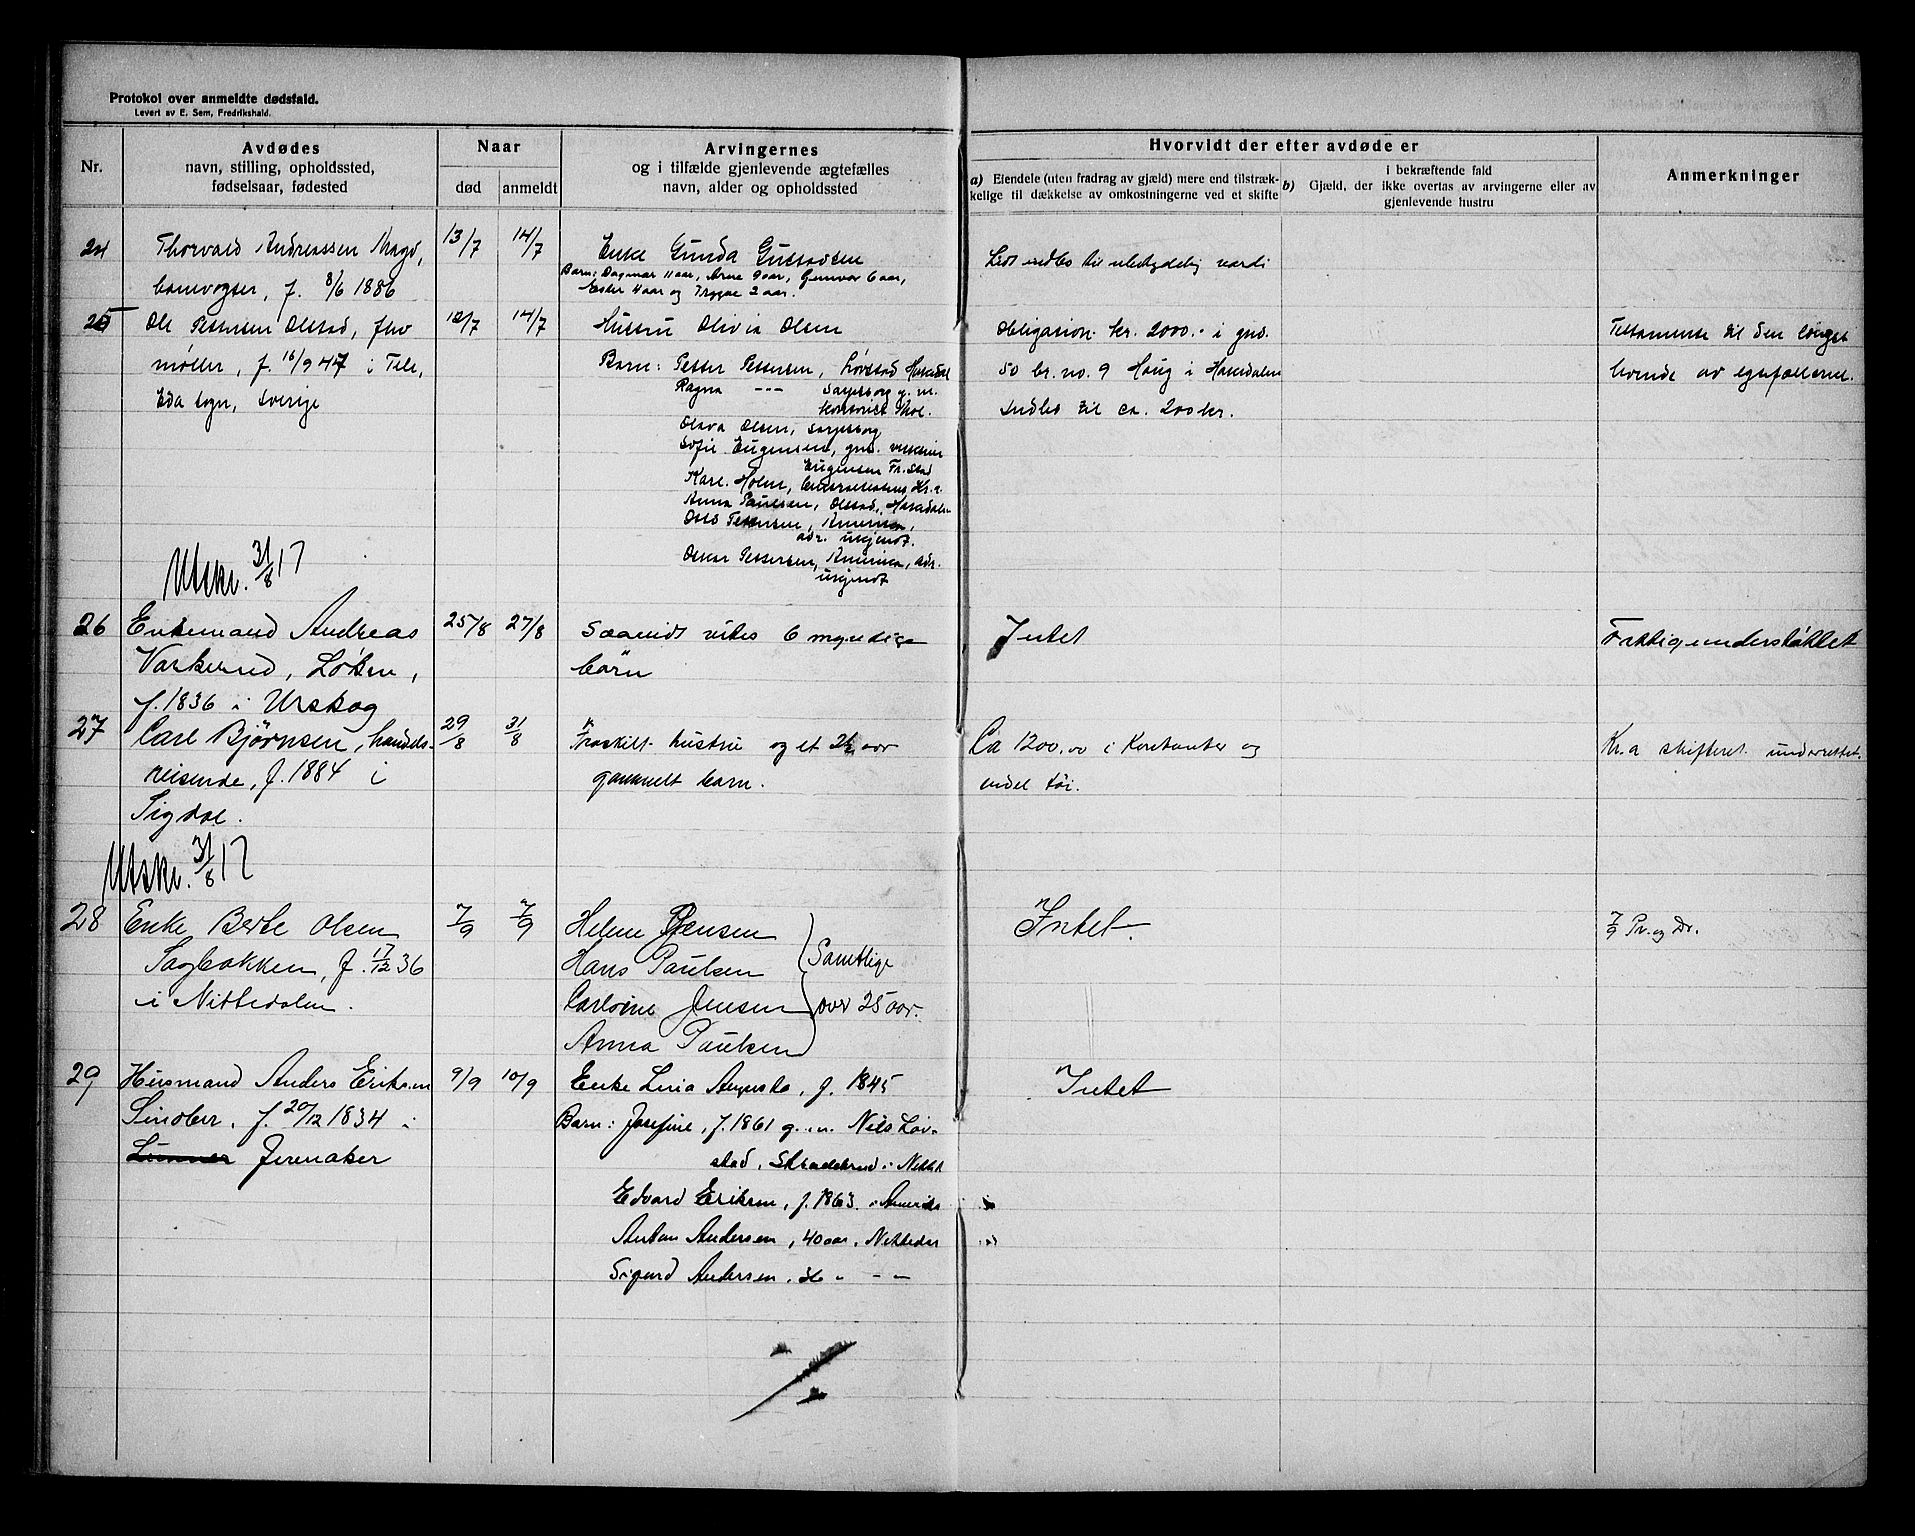 Protokol over anmeldte dødsfald.
Levert av E. Sem, Fredrikshald.
Nr.
Avdødes
navn, stilling, opholdssted,
fødselsaar, fødested
Naar
død
anmeldt
Arvingernes
og i tilfælde gjenlevende ægtefælles
navn, alder og opholdssted
Hvorvidt der efter avdøde er
a) Eiendele (uten fradrag av gjæld) mere end tilstræk-
kelige til dækkelse av omkostningerne ved et skifte
i bekræftende fald
b) Gjæld, der ikke overtas av arvingerne eller av
gjenlevende hustru
Anmerkninger
24 Thorvald Andreassen 13/7 14/7 Enke Gunda Gustavsen
Barn: Dagmar 11 aar, Arne 9 aar, Gunvor 6 aar,
Ester 4 aar og Trygve 2 aar.
banevogter, f. 8/6 1886
Lidt indbo til ubetydelig værdi
25 Ole Pettersen Olstad, fhv 12/7 14/7 Hustru Olivia Olsen
møller, f. 16/9 47 i
Eda sogn, Sverige
Barn: Petter Pettersen, Løvstad Hakedal
Ragna -"- Sarpsborg g. m.
kontorist
Olava Olsen, Sarpsborg
Sofie Eugensen, gm.
Eugensen Fr.stad
Karl Holm, Kr.a.
Anna Paulsen, Olstad, Hakedalen
Otto Pettersen, Amerika,
adr. ukjendt.
Oskar Pettersen, Amerika, adr.
ukjendt
Obligasjon kr. 2000.- i gns.
50 br. no. 9 Haug i Hakedalen
Indbo til ca. 200 kr.
Testamente til den længst
levende av egtefællerne.
Utskr. 31/8 17
26 Enkemand Andreas 25/8 27/8 Saavidt vites 6 myndige
børn
Løken,
f. 1836 i Urskog
Intet
Fattigunderstøttet
27 Carl Bjørnsen, handels- 29/8 31/8 Fraskilt hustru og et 2½ aar
gammelt barn.
reisende, f. 1884 i
Sigdal.
Ca 1200,00 i Kontanter og
endel tøi.
Kr.a skifteret underrettet.
Utskr. 31/8 17
28 Enke Berte Olsen 7/9 7/9 Helene Jensen
Sagbakken, f. 17/12 36 Hans Paulsen
i Nittedalen. Carloine Jensen
Anna Paulsen
Samtlige
over 25 aar.
Intet.
7/9 Pr. og Dr.
29 Husmand Anders Eriksen 9/9 10/9 Enke Lina Augusta, f. 1845
Sinober, f. 20/12 1834 i
Lunner Jevnaker
Barn: Josefine, f. 1861 g. m. Nils Løv-
stad, i Nittet
Edvard Eriksen, f. 1863 i Amerika
Anton Andersen, 40 aar, Nittedal
Sigurd Andersen, 36 " - " -
Intet